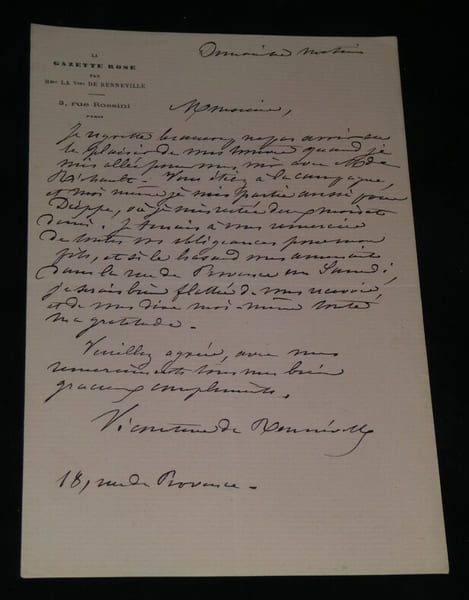 LA
GAZETTE ROSE
PAR
MME LA VTESSE DE RENNEVILLE
3, rue Rossini
PARIS
Dimanche matin
Monsieur,
Je regrette beaucoup ne pas avoir eu
le plaisir de vous trouver quand je
suis allée pour vous voir avec Mde
Rihault. Vous étiez à la campagne
et moi même je suis partie aussi pour
Dieppe, où je suis restée deux mois et
demi. Je tenais à vous remercier
de toutes vos obligeances pour mon
fils, et si le hasard vous amenait
dans la rue de Provence un Samedi,
je serais bien flattée de vous recevoir,
et de vous dire moi-même toute
ma gratitude.
Veuillez agréer, avec mes
remerciements tous mes bien
gracieux compliments.
Vicomtesse de Renneville
18, rue de Provence.